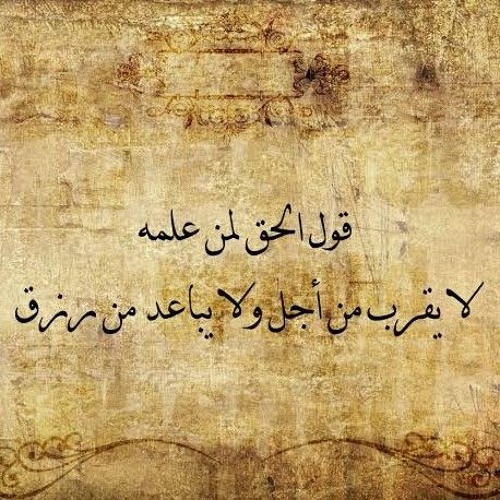 قول الحق لمن علمه
لا يقرب من أجل ولا يباعد من رزق